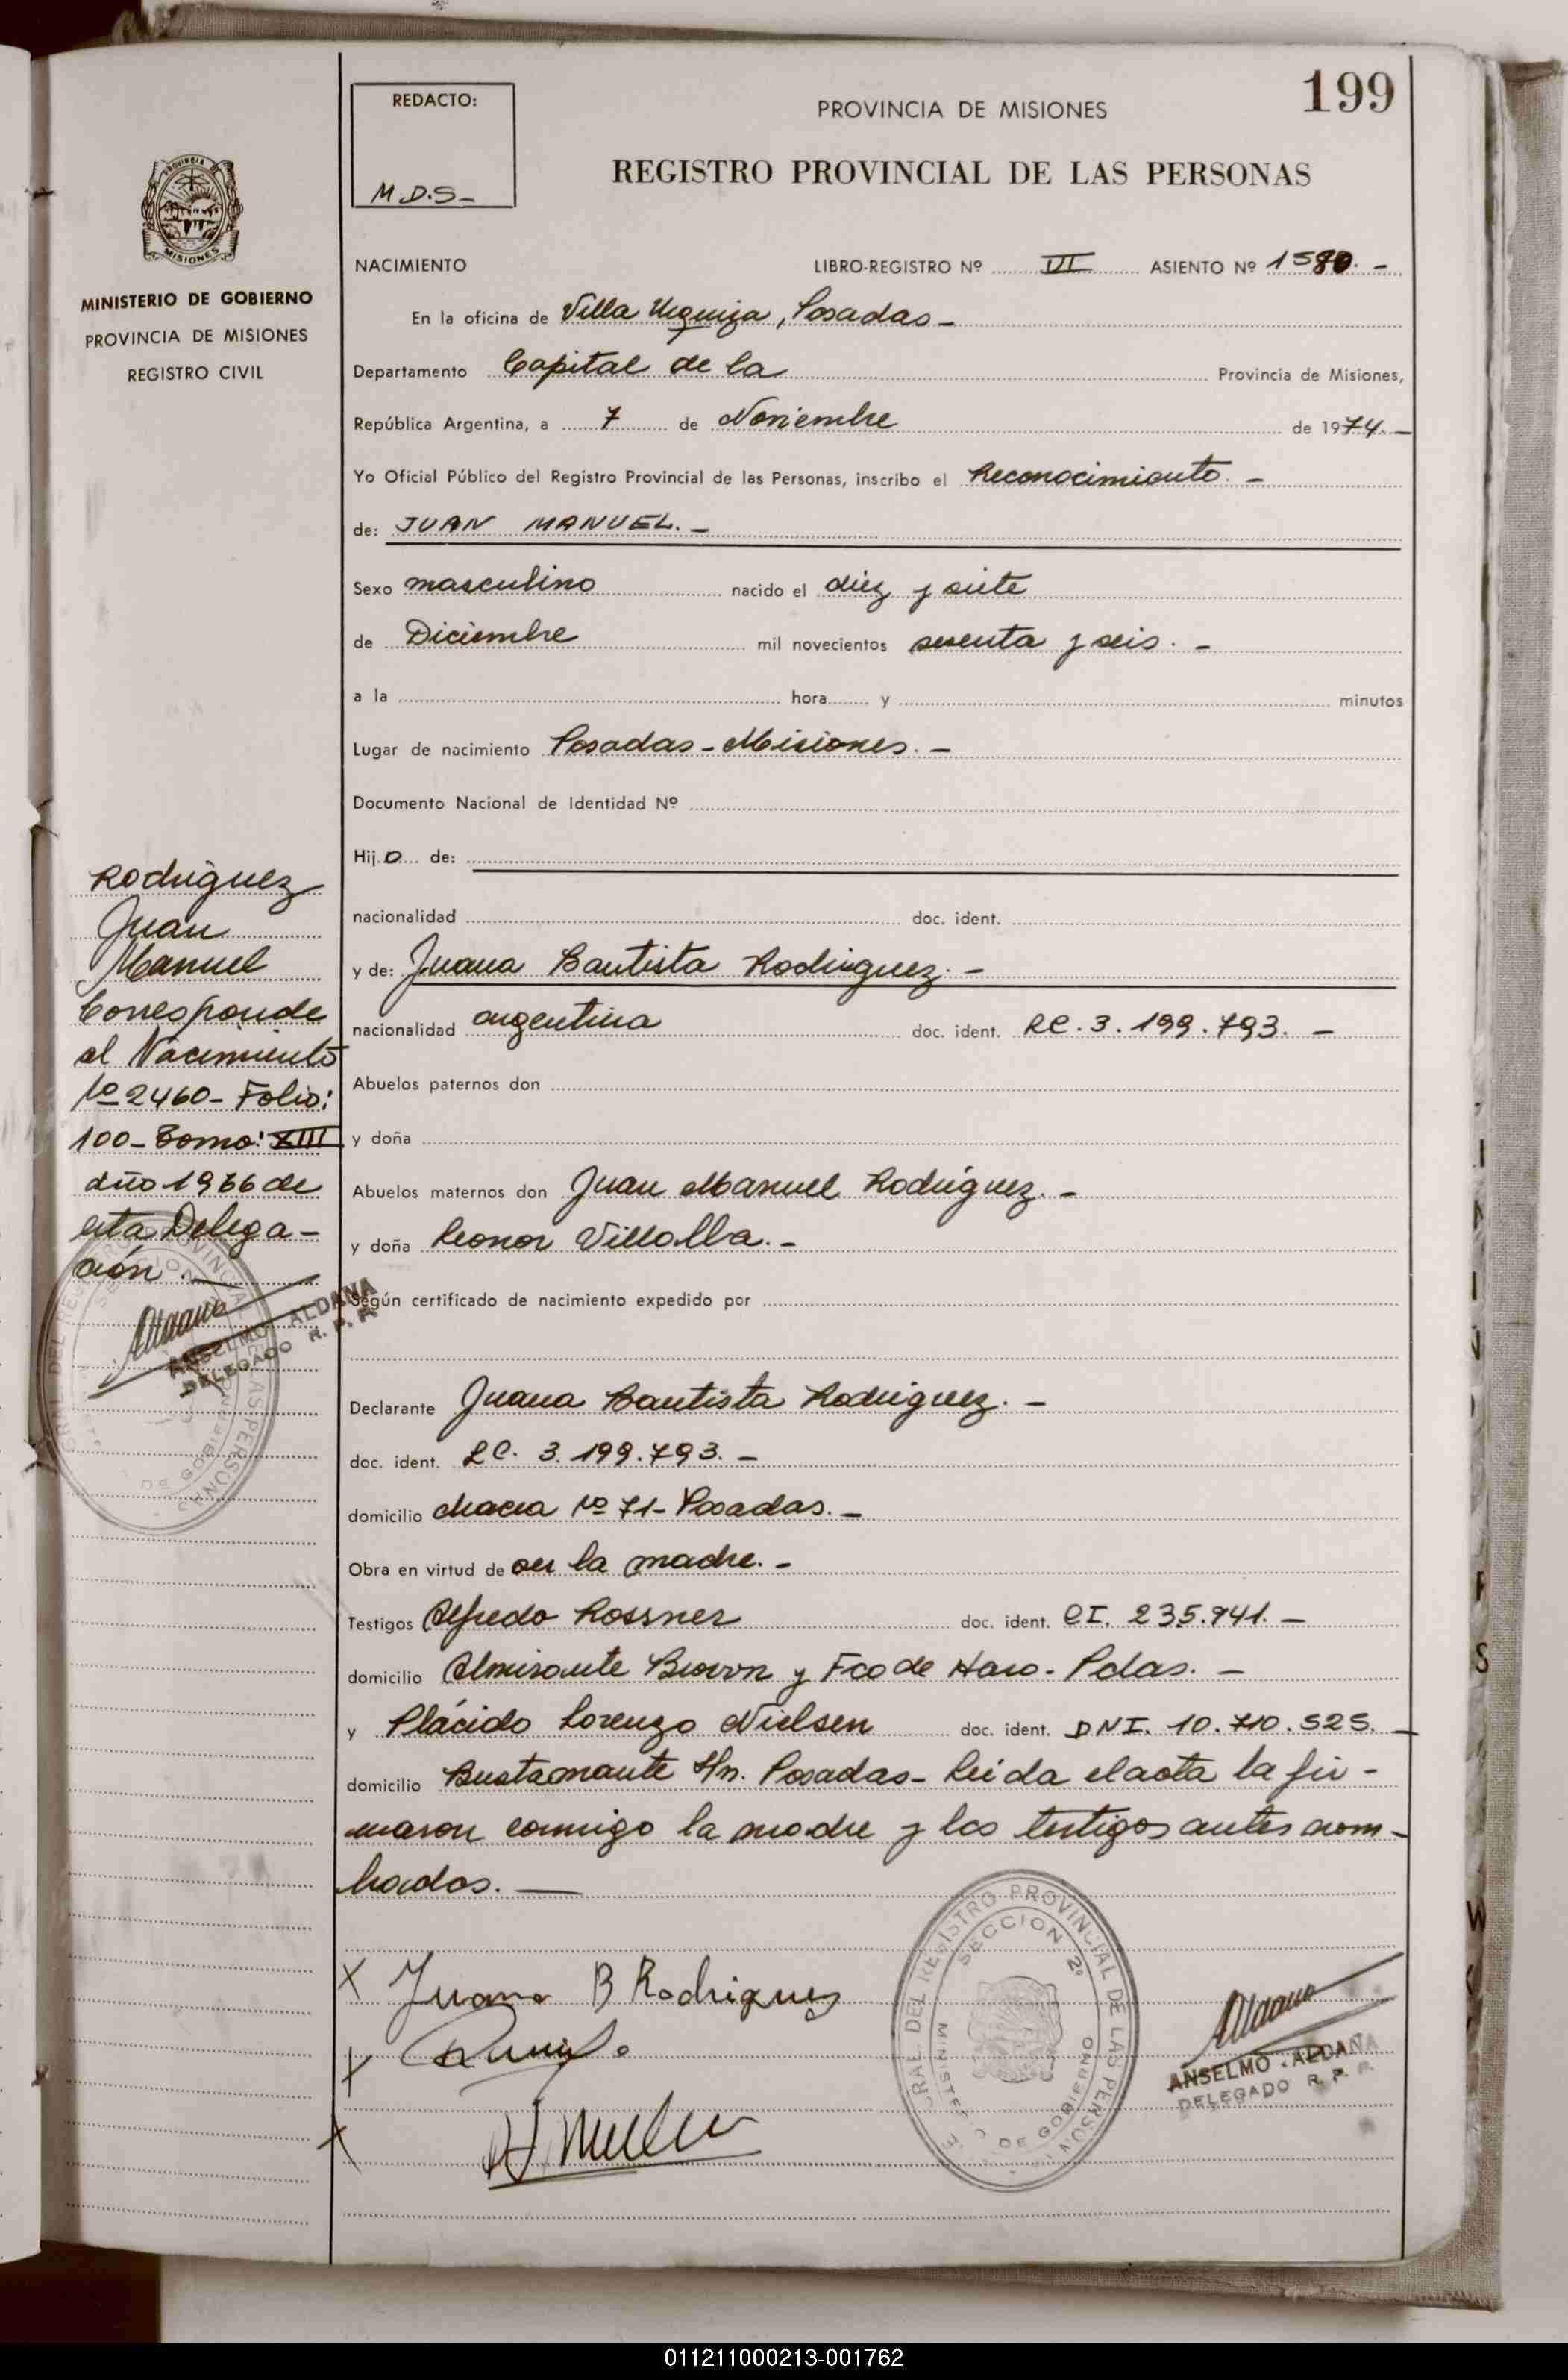 199
REDACTO:
M.D.S-
PROVINCIA DE MISIONES
REGISTRO PROVINCIAL DE LAS PERSONAS
PROVINCIA
MISIONES
MINISTERIO DE GOBIERNO
PROVINCIA DE MISIONES
REGISTRO CIVIL
NACIMIENTO LIBRO-REGISTRO Nº VI ASIENTO Nº 1580.-
En la oficina de Villa Urquiza, Posadas-
Departamento Capital de la Provincia de Misiones,
República Argentina, a 7 de Noviembre de 1974.-
Yo Oficial Público del Registro Provincial de las Personas, inscribo el Reconocimiento.-
de: JUAN MANUEL.-
Sexo masculino nacido el diez y siete
de Diciembre mil novecientos sesenta y seis.-
a la hora y minutos
Lugar de nacimiento Posadas-Misiones.-
Documento Nacional de Identidad Nº
Hijo de:
nacionalidad doc. ident.
y de: Juana Bautista Rodriguez.-
nacionalidad argentina doc. ident. LC. 3.199.793.-
Abuelos paternos don
y doña
Abuelos maternos don Juan Manuel Rodríguez.-
y doña Leonor Villalba.-
Según certificado de nacimiento expedido por
Declarante Juana Bautista Rodriguez.-
doc. ident. LC. 3.199.793.-
domicilio chacra Nº 71- Posadas.-
Obra en virtud de ser la madre.-
Testigos Alfredo Rossner doc. ident. CI. 235.941.-
domicilio Almirante Brown y Fco de Haro- Pdas.-
y Plácido Lorenzo Nielsen doc. ident. DNI. 10.710.525.-
domicilio Bustamante S/n. Posadas- Leida el acta la fir-
maron conmigo la madre y los testigos antes nom-
brados.-
Rodriguez
Juan
Manuel
Corresponde
al Nacimiento
Nº 2460- Folio:
100- Tomo: XIII
año 1966 de
esta Delega-
ción.-
ANSELMO ALDANA
DELEGADO R. P. P.
X Juana B Rodriguez
X
X
GRAL. DEL REGISTRO PROVINCIAL DE LAS PERSONAS
SECCION 2º
MINISTERIO DE GOBIERNO
ANSELMO ALDANA
DELEGADO R. P. P.
011211000213-001762